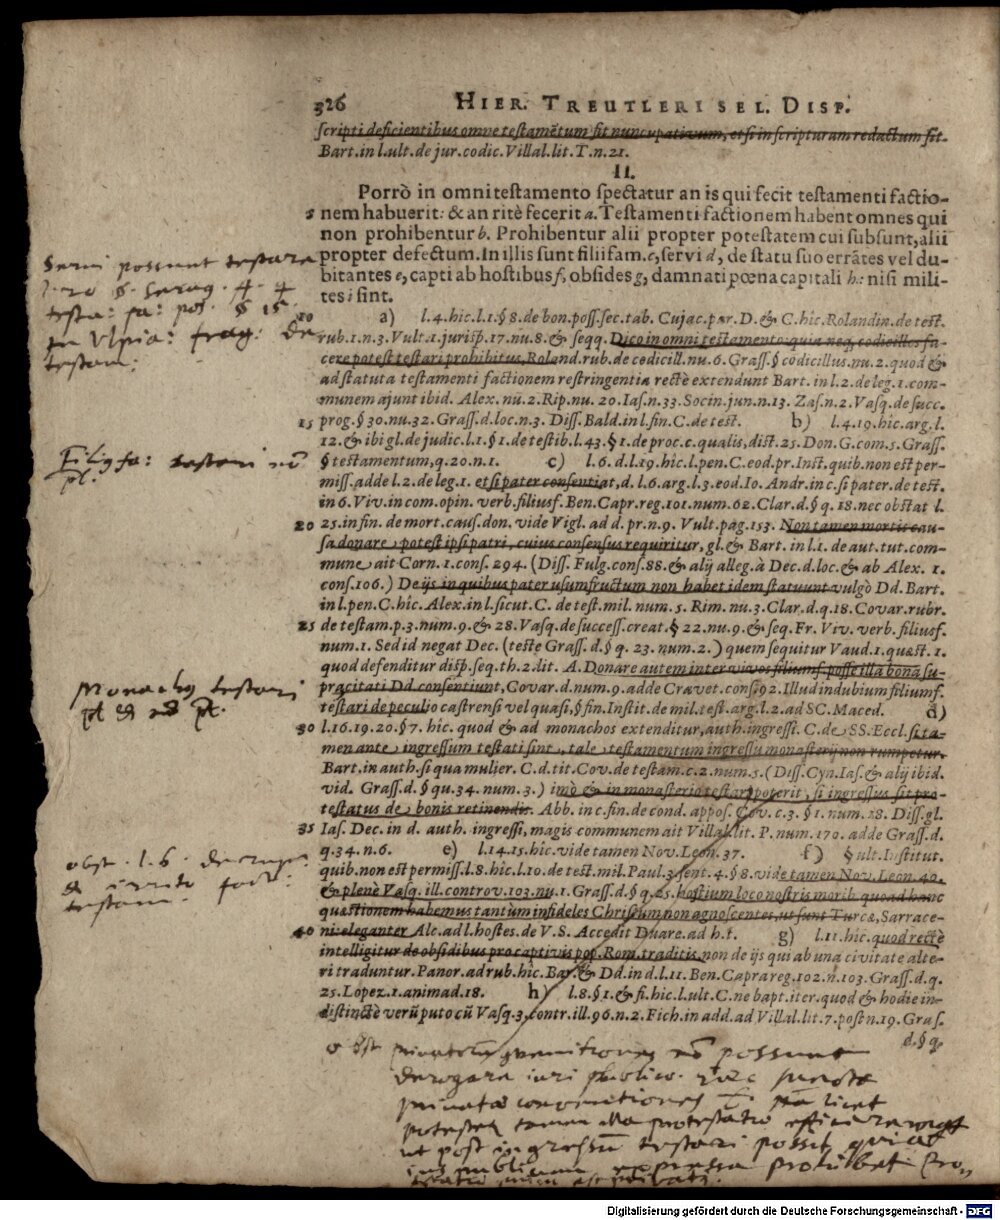 326 HIER. TREUTLERI SEL. DISP.
scripti deficientibus omne testamētum fit nuncupativum, etsi in scripturam redactum sit.
Bart. in l. ult. de jur. codic. Villal. lit. T. n. 21.
II.
Porrò in omni testamento spectatur an is qui fecit testamenti factio-
5 nem habuerit: & an ritè fecerit a. Testamenti factionem habent omnes qui
non prohibentur b. Prohibentur alii propter potestatem cui subsunt, alii
Servi possunt testare
propter defectum. In illis sunt filiifam. c, servi d, de statu suo errātes vel du-
bitantes e, capti ab hostibus f, obsides g, damnati pœna capitali h: nisi mili-
tes i sint.
Vlpia: frag: de
testam:
10 a) l. 4. hic. l. 1. § 8. de bon. poss. sec. tab. Cujac. par. D. & C. hic. Rolandin. de test.
rub. 1. n. 3. Vult. 1. jurisp. 17. nu. 8. & seqq. Dico in omni testamento: quia neq; codicillos fa-
cere potest testari prohibitus, Roland. rub. de codicill. nu. 6. Grass. § codicillus. nu. 2. quod &
ad statuta testamenti factionem restringentia rectè extendunt Bart. in l. 2. de leg. 1. com-
munem ajunt ibid. Alex. nu. 2. Rip. nu. 20. Ias. n. 33. Socin. jun. n. 13. Zas. n. 2. Vasq. de succ.
15 prog. § 30. nu. 32. Grass. d. loc. n. 3. Diss. Bald. in l. fin. C. de test. b) l. 4. 19. hic. arg. l.
12. & ibi gl. de judic. l. 1. § 1. de testib. l. 43. § 1. de proc. c. qualis, dist. 25. Don. G. com. 5. Grass.
testari nō
§ testamentum, q. 20. n. 1. c) l. 6. d. l. 19. hic. l. pen. C. eod. pr. Inst. quib. non est per-
miss. adde l. 2. de leg. 1. etsi pater consentiat, d. l. 6. arg. l. 3. eod. Io. Andr. in c. si pater. de test.
in 6. Viv. in com. opin. verb. filiusf. Ben. Capr. reg. 101. num. 62. Clar. d. § q. 18. nec obstat l.
20 25. in fin. de mort. caus. don. vide Vigl. ad d. pr. n. 9. Vult. pag. 153. Non tamen mortis cau-
sa donare, potest ipsi patri, cuius consensus requiritur, gl. & Bart. in l. 1. de aut. tut. com-
mune, ait Corn. 1. cons. 294. (Diss. Fulg. cons. 88. & alij alleg. à Dec. d. loc. & ab Alex. 1.
cons. 106.) De ijs in quibus pater usumfructum non habet idem statuunt vulgò Dd. Bart.
in l. pen. C. hic. Alex. in l. sicut. C. de test. mil. num. 5. Rim. nu. 3. Clar. d. q. 18. Covar. rubr.
25 de testam. p. 3. num. 9. & 28. Vasq. de success. creat. § 22. nu. 9. & seq. Fr. Viv. verb. filiusf.
num. 1. Sed id negat Dec. (teste Grass. d. § q. 23. num. 2.) quem sequitur Vaud. 1. quæst. 1.
quod defenditur disp. seq. th. 2. lit. A. Donare autem inter vivos filiumf. posse illa bona su-
Monachus testari
pracitati Dd. consentiunt, Covar. d. num. 9. adde Cravet. cons. 92. Illud indubium filiumf.
testari de peculio castrensi vel quasi, § fin. Instit. de mil. test. arg. l. 2. ad SC. Maced. d)
30 l. 16. 19. 20. § 7. hic. quod & ad monachos extenditur, auth. ingressi. C. de SS. Eccl. si ta-
men ante ingressum testati sint, tale testamentum ingressu monasterij non rumpetur.
Bart. in auth. si qua mulier. C. d. tit. Cov. de testam. c. 2. num. 5. (Diss. Cyn. Ias. & alij ibid.
vid. Grass. d. § qu. 34. num. 3.) imò & in monasterio testari poterit, si ingressus sit pro-
testatus de bonis retinendis. Abb. in c. fin. de cond. appos. Cov. c. 3. § 1. num. 18. Diss. gl.
35 Ias. Dec. in d. auth. ingressi, magis communem ait Villal. lit. P. num. 170. adde Grass. d.
q. 34. n. 6. e) l. 14. 15. hic. vide tamen Nov. Leon. 37. f) § ult. Institut.
quib. non est permiss. l. 8. hic. l. 10. de test. mil. Paul. 3. sent. 4. § 8. vide tamen Nov. Leon. 40.
& plenè Vasq. ill. controv. 103. nu. 1. Grass. d. § q. 25. hostium loco nostris morib. quoad hanc
testam:
quæstionem habemus tantùm infideles Christum non agnoscentes, ut sunt Turcæ, Sarrace-
40 ni: eleganter Alc. ad l. hostes. de V. S. Accedit Duare. ad h. t. g) l. 11. hic. quod rectè
intelligitur de obsidibus pro captivis pop. Rom. traditis, non de ijs qui ab una civitate alte-
ri traduntur. Panor. ad rub. hic. Bar. & Dd. in d. l. 11. Ben. Capra reg. 102. n. 103. Grass. d. q.
25. Lopez. 1. animad. 18. h) l. 8. § 1. & fi. hic. l. ult. C. ne bapt. iter. quod & hodie in-
distinctè verū puto cū Vasq. 3. contr. ill. 96. n. 2. Fich. in add. ad Villal. lit. 7. post n. 19. Gras.
d. § q.
nō possunt
derogare iuri publico.
privatæ conventiones licet
tamen illa protestatio
ut post ingressum testari possit quia
ius publicum expressa prohibet
Digitalisierung gefördert durch die Deutsche Forschungsgemeinschaft - DFG